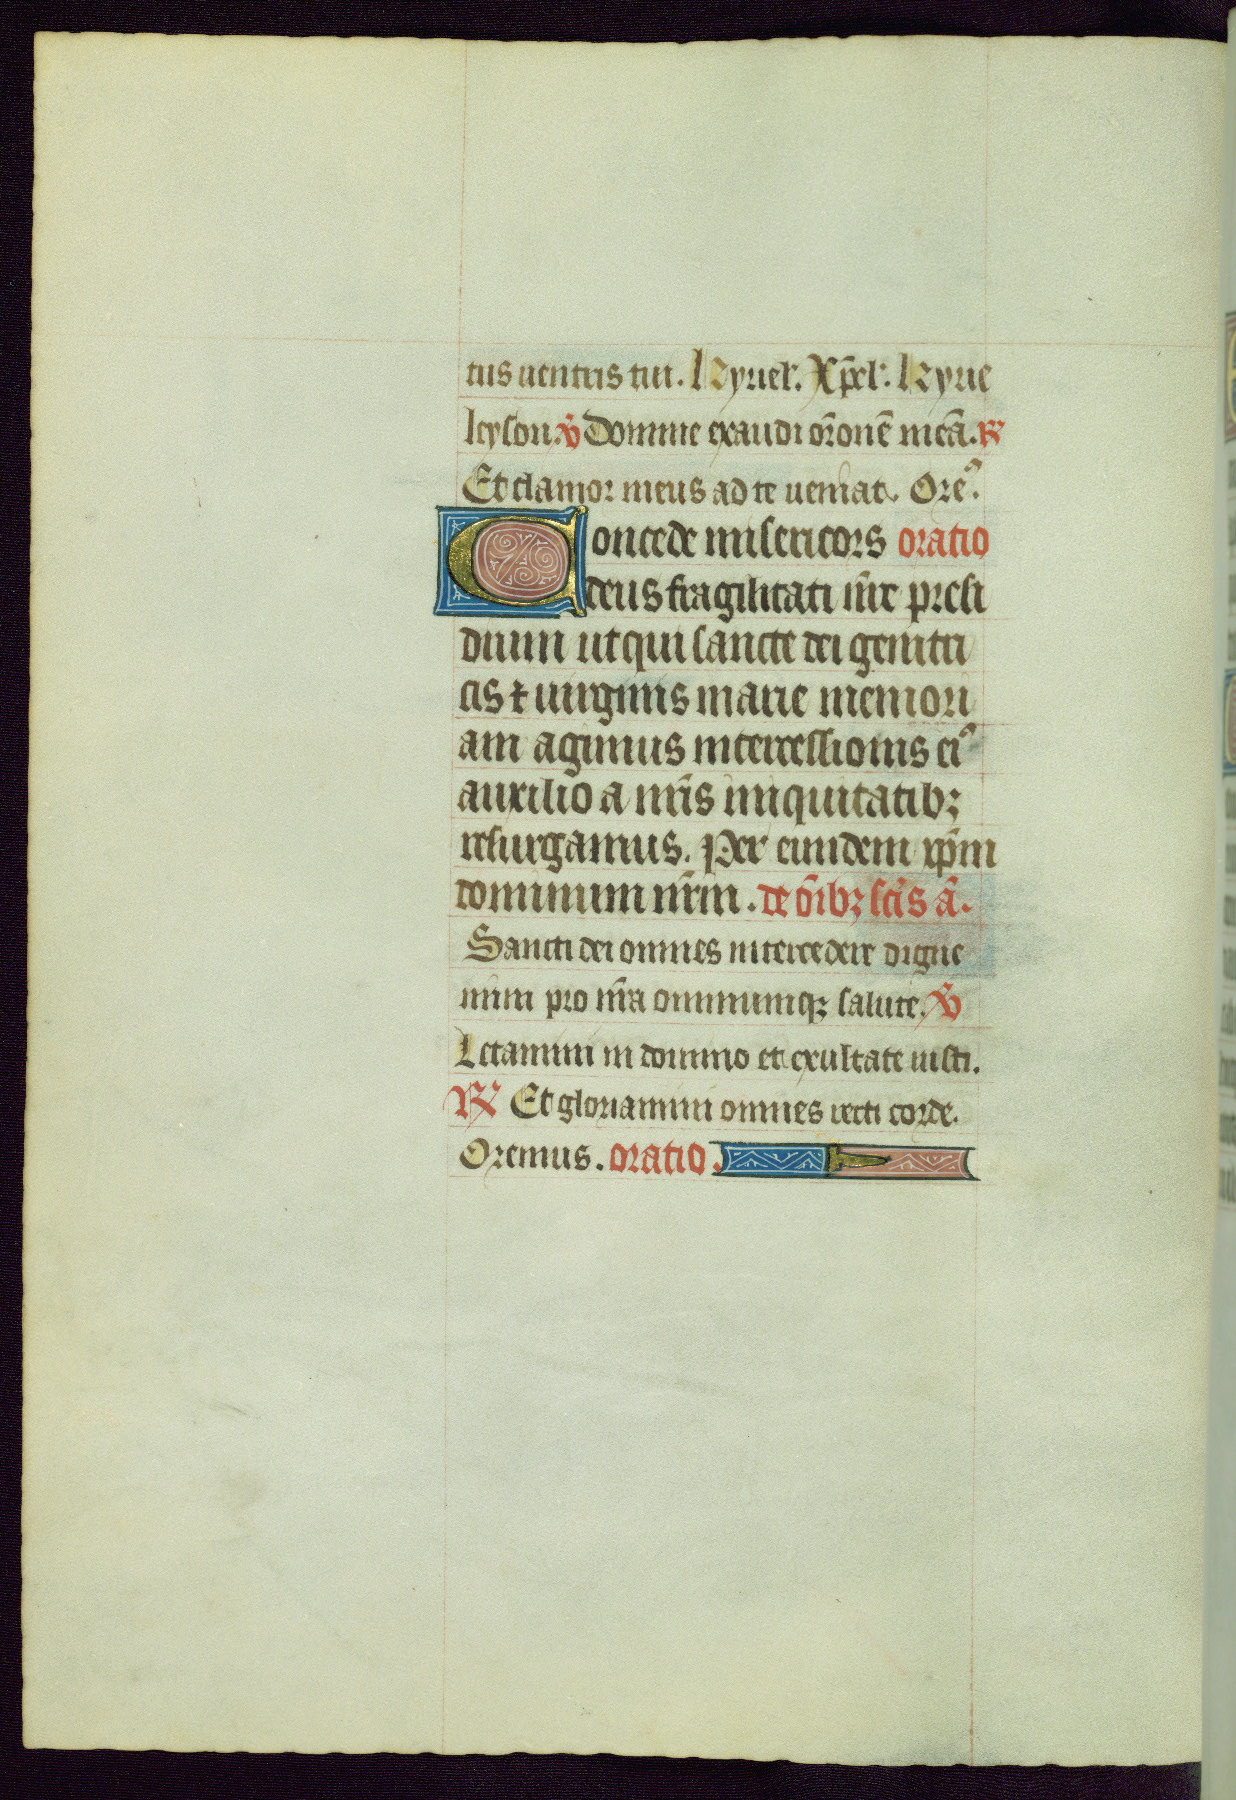 tus uentris tui. Kyriel'. Xp̄el'. Kyrie
leyson. ℣ Domine exaudi or̄onē meā. ℟
Et clamor meus ad te ueniat. Ore᷒.
Concede misericors oratio
deus fragilitati nr̄e presi
dium ut qui sancte dei genitri
cis ⁊ uirginis marie memori
am agimus intercessionis ei᷒
auxilio a nr̄is iniquitatibꝫ
resurgamus. Per eundem xp̄m
dominum nr̄m. de om̄ibꝫ sc̄is a᷉.
Sancti dei omnes intercedere digne
mini pro nr̄a omniumqꝫ salute. ℣
Letamini in domino et exultate iusti.
℟ Et gloriamini omnes recti corde.
Oremus. oratio.